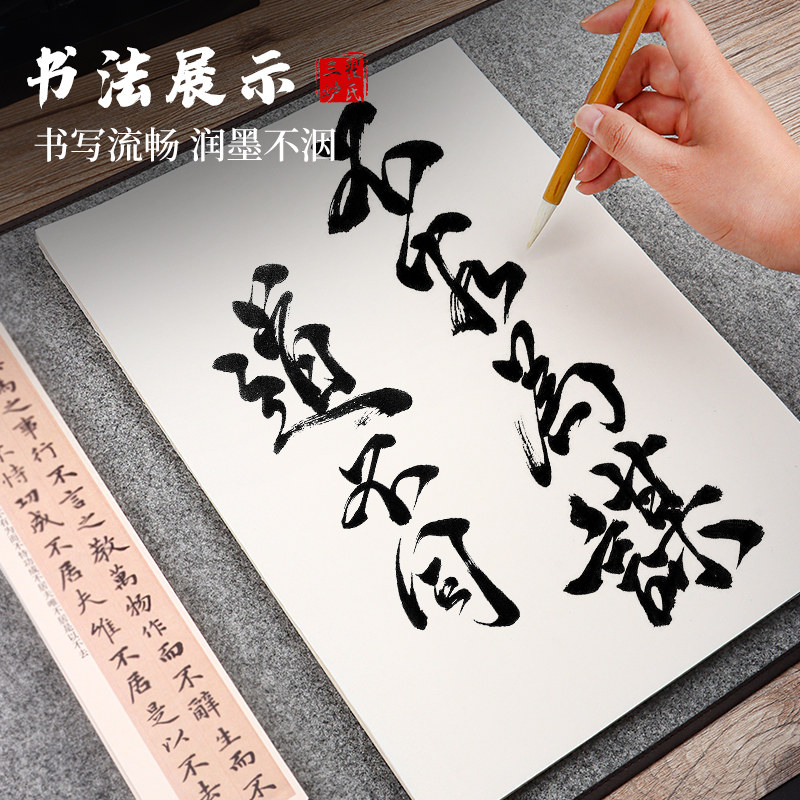 书法展示
书写流畅 润墨不洇
道不同
不相为謀
為之事行不言之教萬物作而不辭生而不
不恃功成不居夫唯不居是以不去